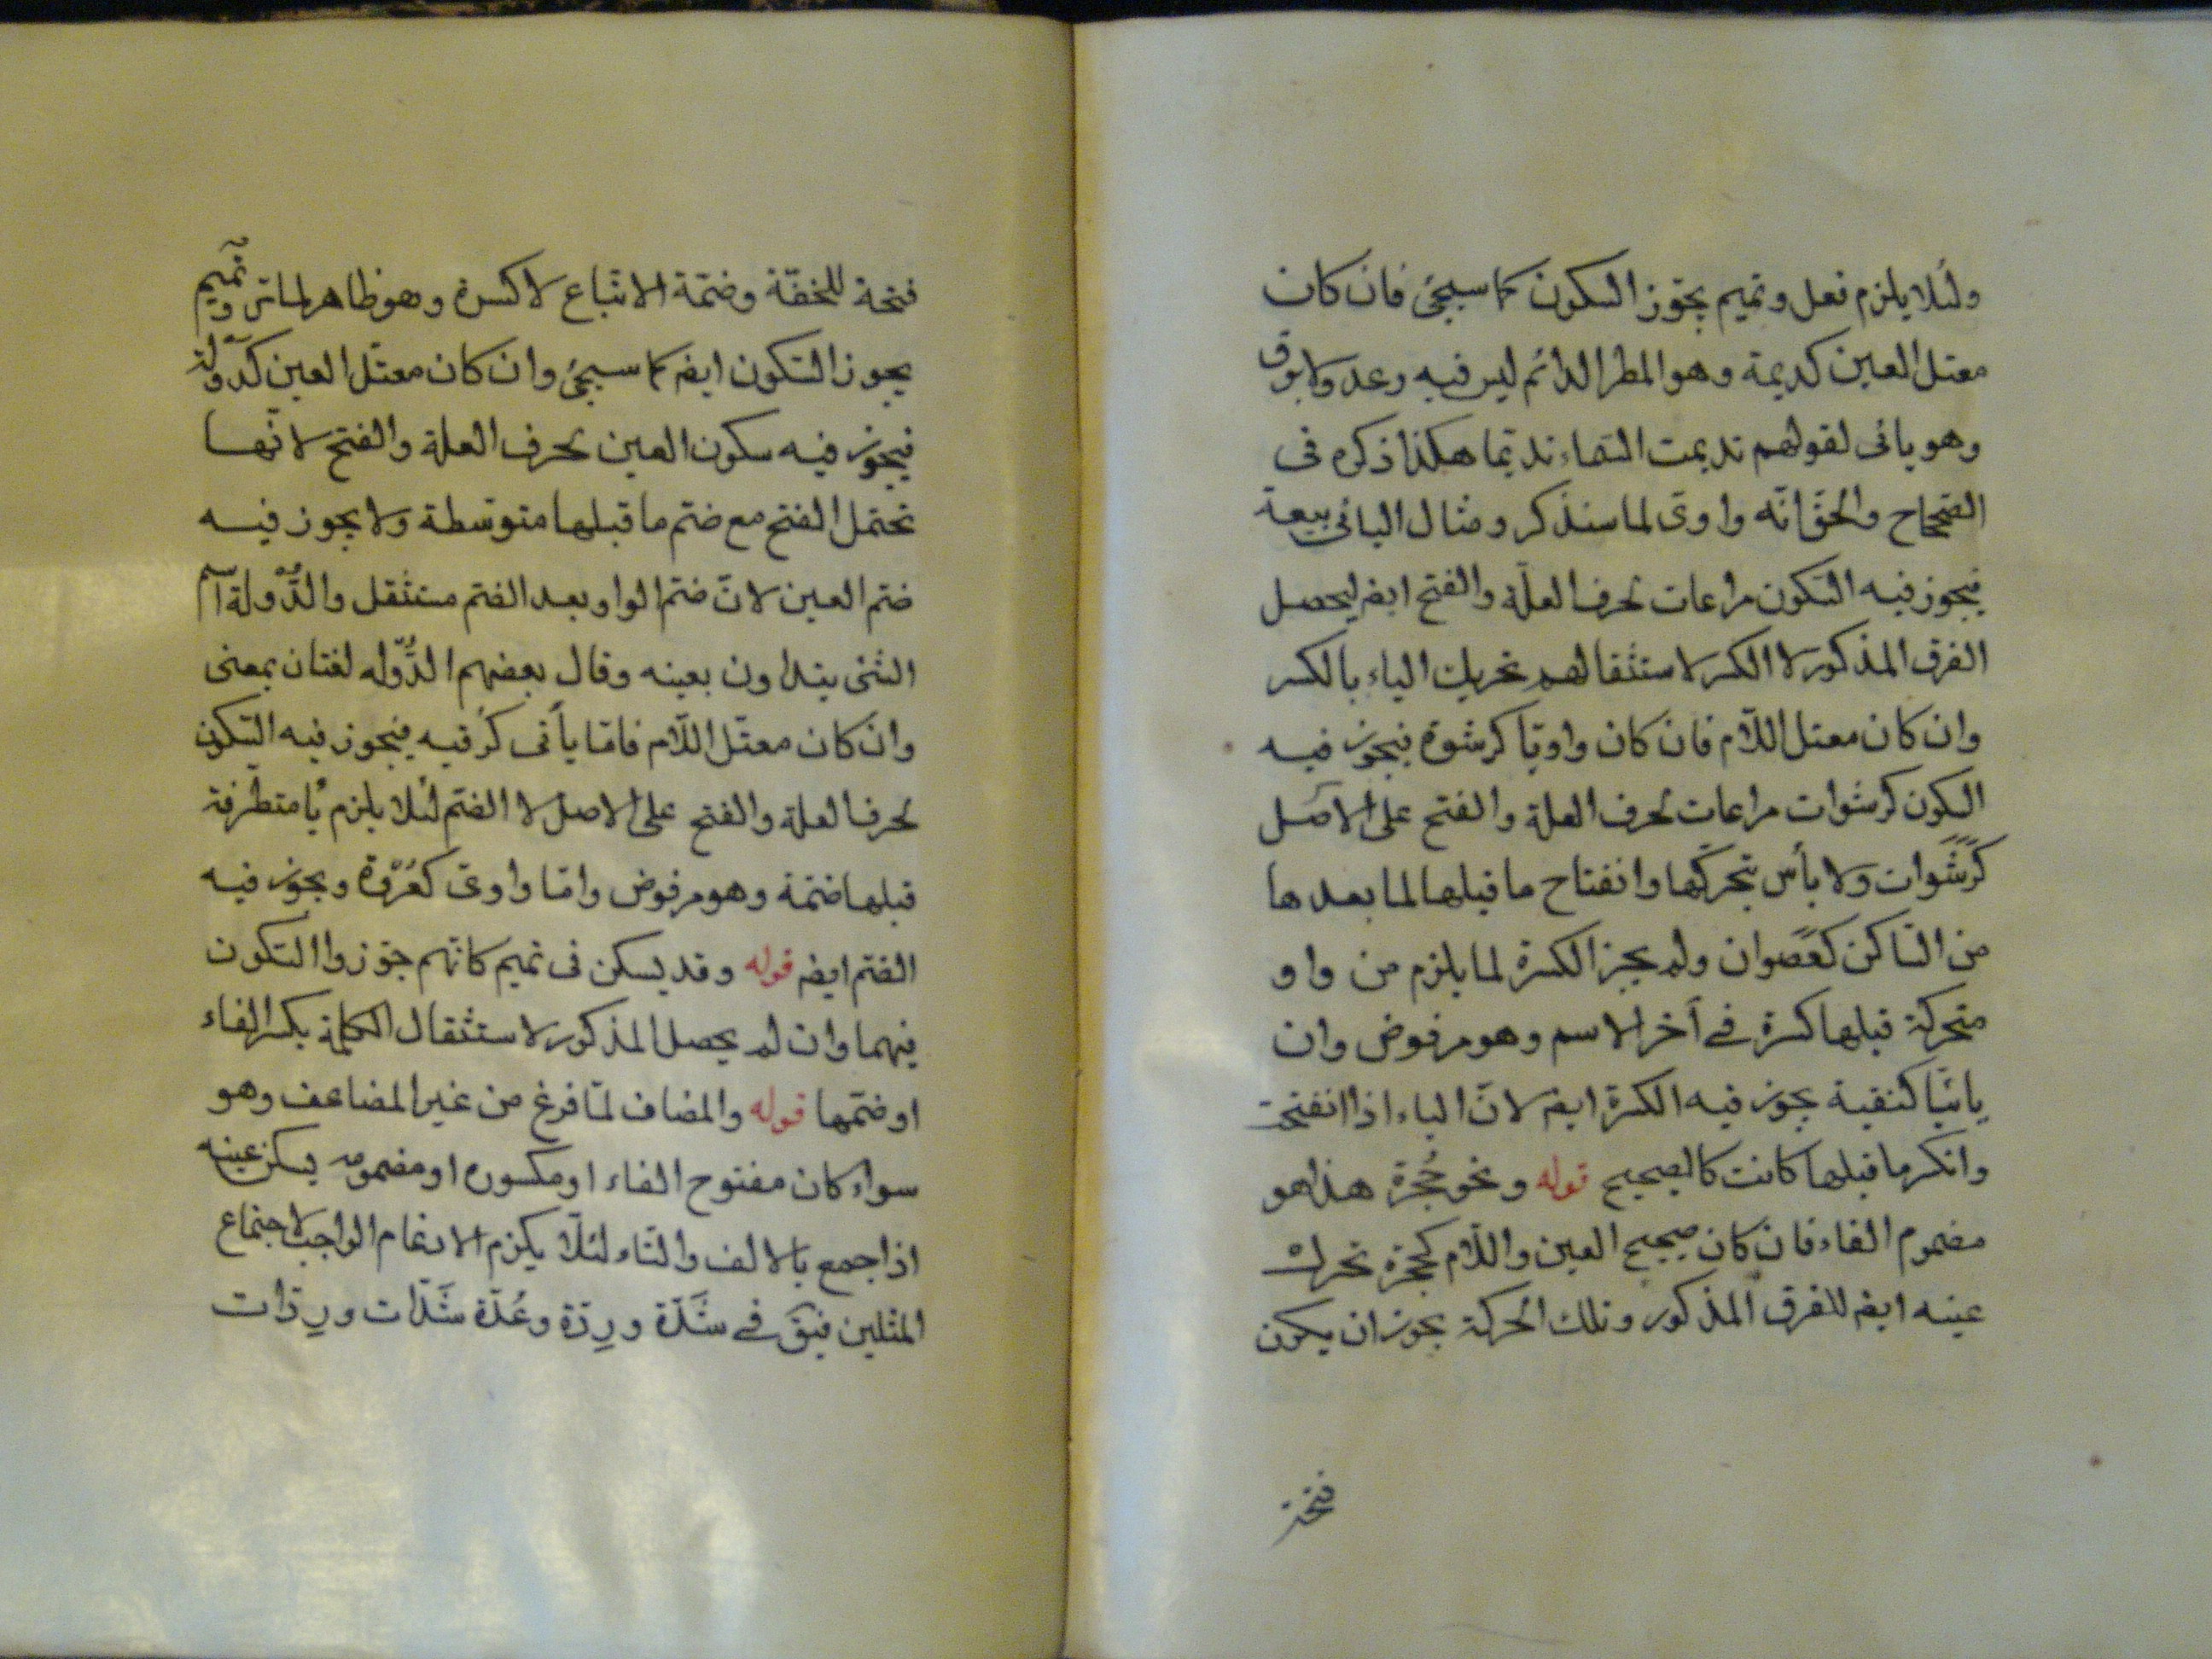 ولئلا يلزم فعل وتميم يجوّز السكون كما سيجئ فان كان
معتل العين كديمة وهو المطر الدائم ليس فيه رعد ولا برق
وهو يائى لقولهم تديمت السّماء تديّما هكذا ذكره فى
الصّحاح والحقّ انّه واوىّ لما سنذكر ومثال اليائى بيعة
فيجوز فيه السّكون مراعات لحرف العلّة والفتح ايضا ليحصل
الفرق المذكور لا الكسر لاستثقالهم تحريك الياء بالكسر
وان كان معتل اللّام فان كان واويّا كرشوة فيجوز فيه
السكون كرشوات مراعات لحرف العلة والفتح على الاصل
كرشَوات ولا بأس بتحرّكها وانفتاح ما قبلها لما بعدها
من السّاكن كعصوان ولم يجز الكسرة لما يلزم من واو
متحركة قبلها كسرة فى آخر الاسم وهو مرفوض وان
يائيّا كنقية يجوز فيه الكسرة ايضا لانّ الياء اذا انفتحت
وانكسر ما قبلها كانت كالصحيح قوله ونحو حُجرة هذا هو
مضموم الفاء فان كان صحيح العين واللّام كحجرة تحرك
عينه ايضا للفرق المذكور وتلك الحركة يجوز ان يكون
فتحة
فتحة للخفّة وضمّة الاتباع لا كسرة وهو ظاهر لما مرّ وتميم
يجوز السّكون ايضا كما سيجئ وان كان معتّل العين كدولة
فيجوز فيه سكون العين لحرف العلة والفتح لانّها
تحتمل الفتح مع ضمّ ما قبلها متوسّطة ولا يجوز فيه
ضم العين لانّ ضمّ الواو بعد الضم مستثقل والدُّولة اسم
الشئ يتداون بعينه وقال بعضهم الدُّوله لغتان بمعنى
وان كان معتّل اللّام فامّا يأئى كرُقيه فيجوز فيه السّكون
لحرف العلة والفتح على الاصل لا الضم لئلا يلزم يأ متطرّفة
قبلها ضمّة وهو مرفوض وامّا واوىّ كعُرْوة ويجوز فيه
الضم ايضا قوله وقد يسكن فى تميم كانّهم جوّزوا السّكون
فيهما وان لم يحصل المذكور لاستثقال الكلمة بكسر الفاء
او ضمّها قوله والمضاف لمّا فرغ من غير المضاعف وهو
سواء كان مفتوح الفاء او مكسوره او مضمومه يسكن عينه
اذا جمع بالالف والتّاء لئلّا يلزم الادغام الواجب لاجتماع
المثلين فيق فى شَدّة ورِدّة وعُدّة شَدّات ورِدّات